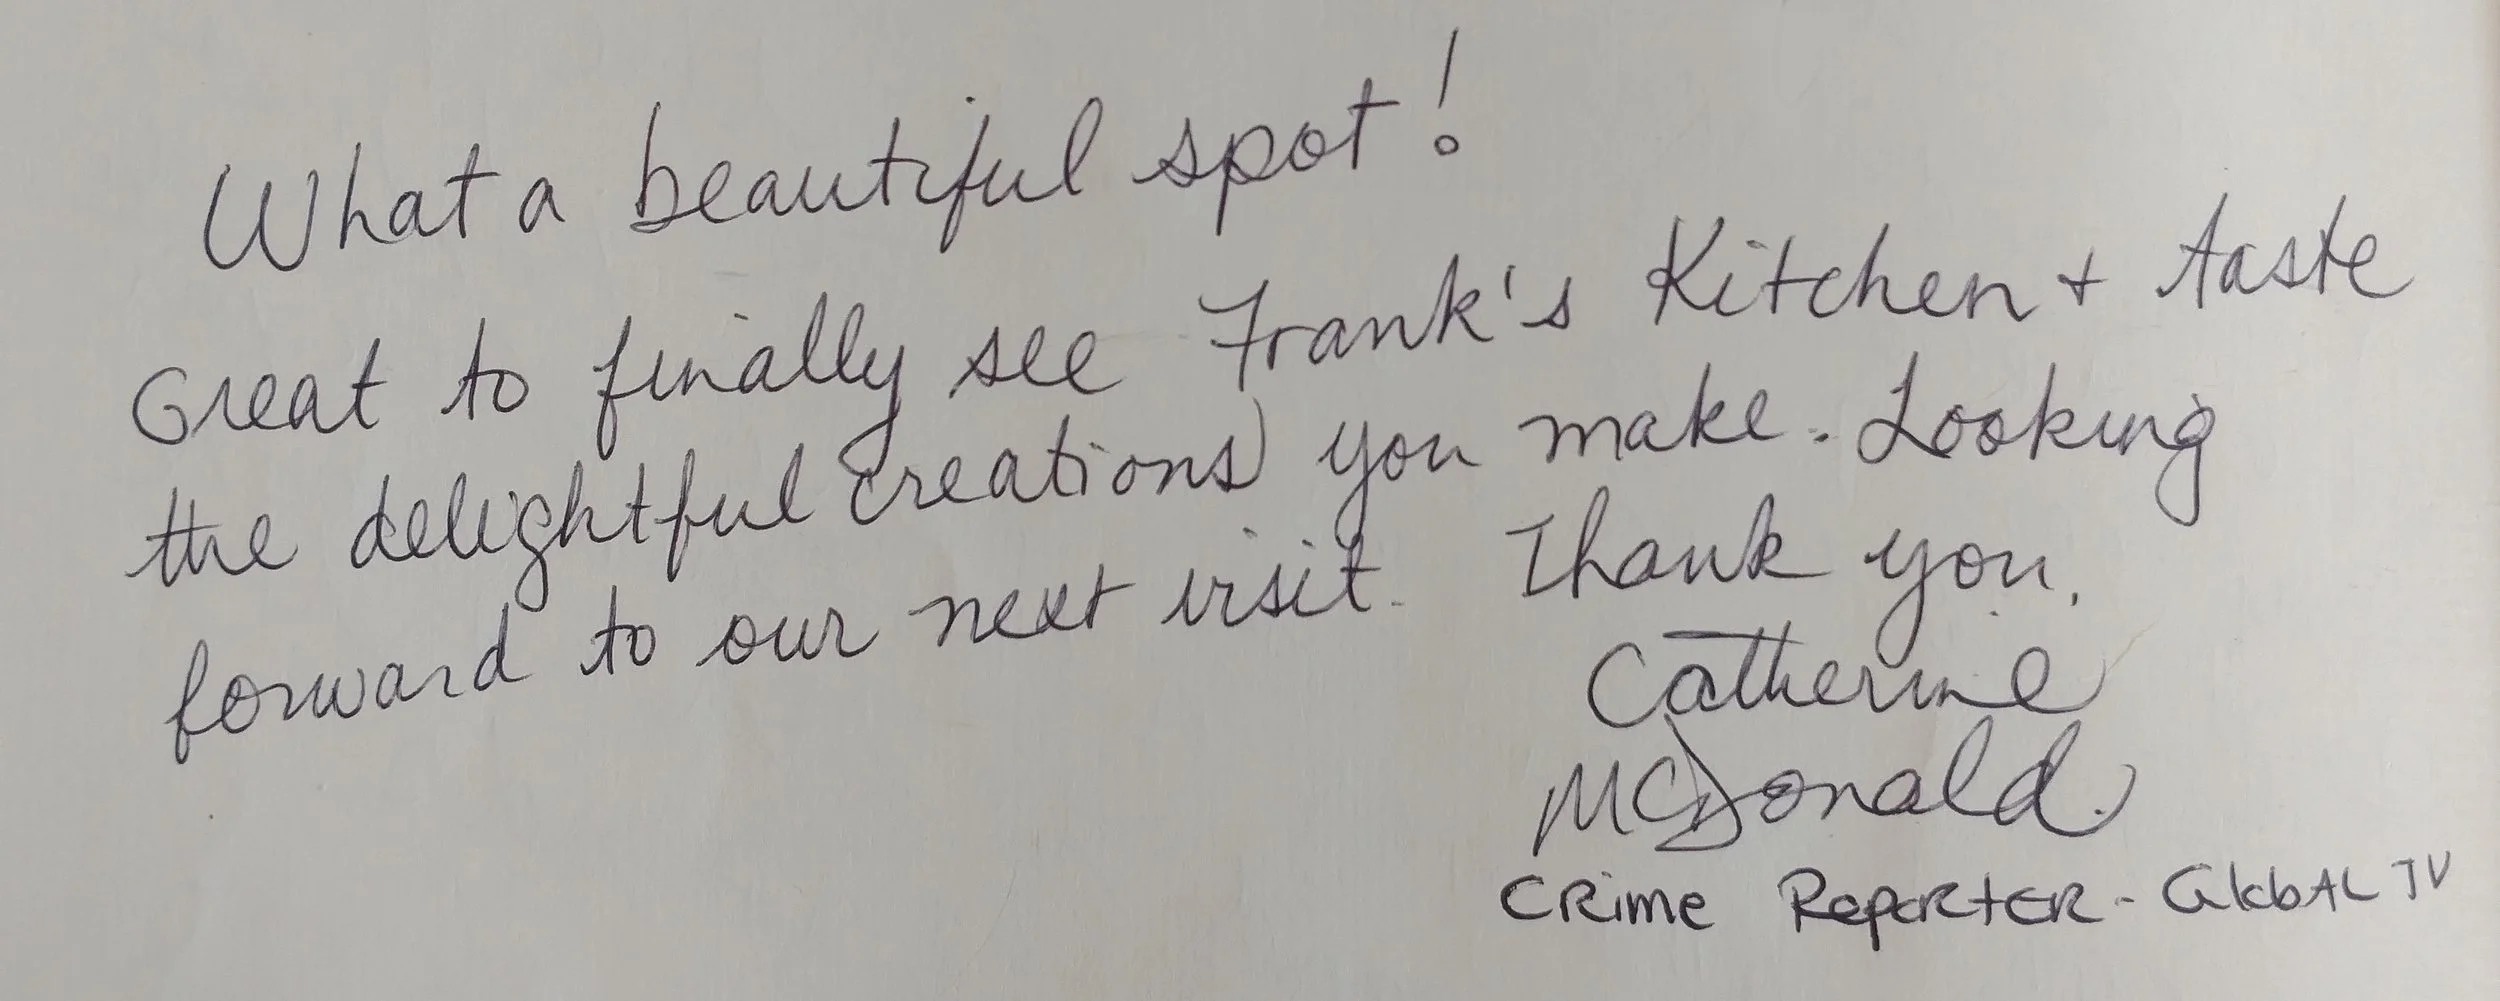 What a beautiful spot!
Great to finally see Frank's Kitchen + taste
the delightful creations you make. Looking
forward to our next visit. Thank you,
Catherine
McDonald.
CRime RepoRteR - GlobAL TV